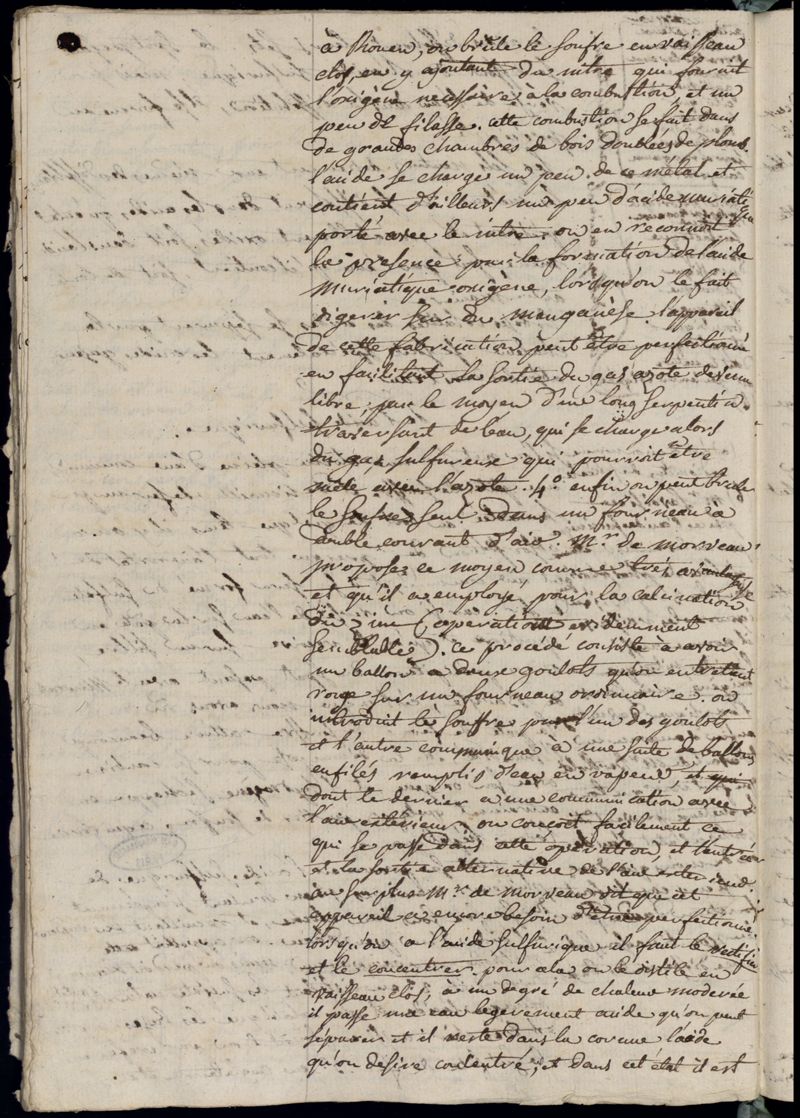 à Rouen, on brûle le soufre en vaisseau
clos, en y ajoutant du nitre qui fournit
l'oxigène necessaire à la combustion et un
peu de filasse. cette combustion se fait dans
de grandes chambres de bois doublées de plomb.
l'acide se charge un peu de ce métal et
contient d'ailleurs un peu d'acide muriati
porté avec le nitre. on en reconnoit
la presence par la formation de l'acide
muriatique oxigène, lorsqu'on le fait
digerer sur du manganèse. l'appareil
de cette fabrication peut être perfectionné
en facilitant la sortie du gas azote devenu
libre, par le moyen d'un long serpentin
traversant de l'eau, qui se charge alors
du gas sulfureux qui pourroit être
mêlé avec l'azote. 4.° enfin on peut brûler
le soufre seul dans un fourneau à
double courant d'air. Mr. de Morveau
propose ce moyen comme très avantageux
et qu'il a employé pour la calcination
du zinc (operation evidemment
semblable). ce procédé consiste a avoir
un ballon a deux goulots qu'on entretient
rouge sur un fourneau ordinaire. on
introduit le souffre par l'un des goulots
et l'autre communique à une suite de ballons
enfilés remplis d'eau en vapeur, et qui
dont le dernier a une communication avec
l'air extérieur. on conçoit facilement ce
qui se passe dans cette operation, et l'entrée
et la sortie alternative de l'air exterieur.
au surplus Mr. de Morveau dit que cet
appareil a encore besoin d'être perfectionné
lorsqu'on a l'acide sulfurique il faut le rectifier
et le concentrer. pour cela on le distile en
vaisseau clos, à un degré de chaleur moderée
il passe une eau legerement acide qu'on peut
séparer et il reste dans la cornue l'acide
qu'on desire concentré, et dans cet état il est